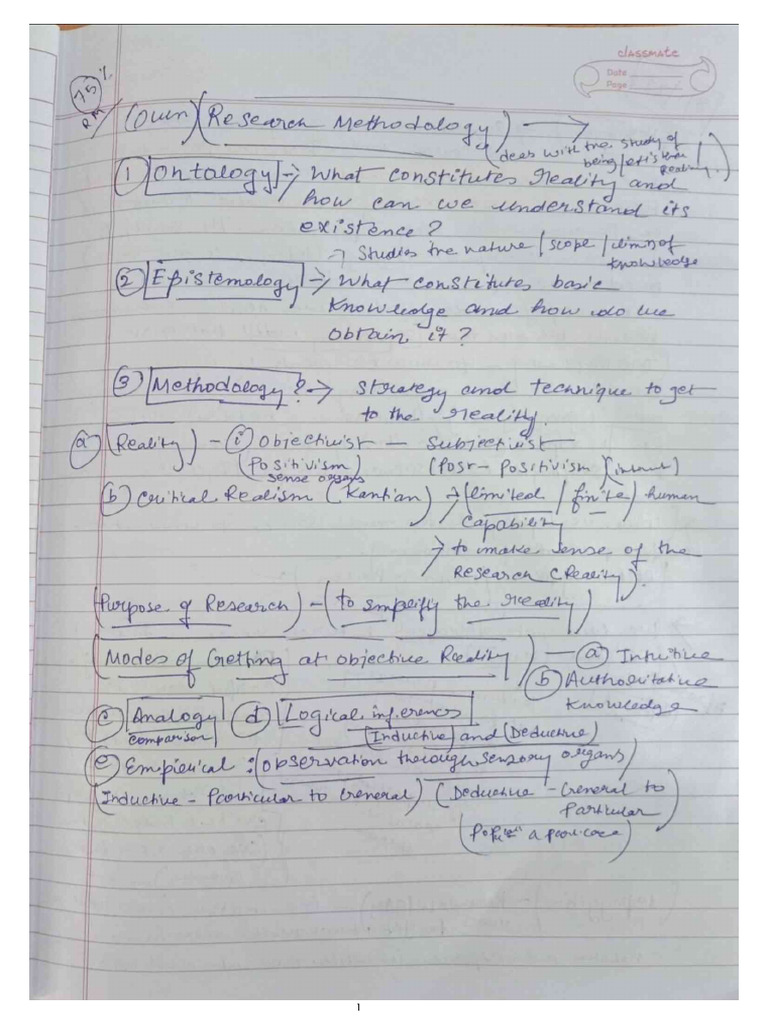 classmate
Date
Page
75%
RM/ (Own) (Research Methodology) →
(deals with the study of
being/existence
Reality.)
① Ontology → What constitutes reality and
how can we understand its
existence?
→ Studies the nature / scope / limit of
knowledge
② Epistemology → What constitutes basic
knowledge and how do we
obtain it?
③ Methodology? → Strategy and technique to get
to the reality.
ⓐ (Reality) – ⓘ Objectivist – Subjectivist
(Positivism) (Post-Positivism)
sense organs
ⓑ Critical Realism (Kantian) → (limited / finite) human
capability
→ to make sense of the
Research (Reality).
(Purpose of Research) – (to smplify the reality)
(Modes of Getting at objective Reality) – ⓐ Intuitive
ⓑ Authoritative
knowledge
ⓒ Analogy ⓓ Logical inferences
comparison (Inductive) and (Deductive)
ⓔ Empirical : (Observation through sensory organs)
(Inductive – Particular to General) (Deductive – General to
Particular)
1